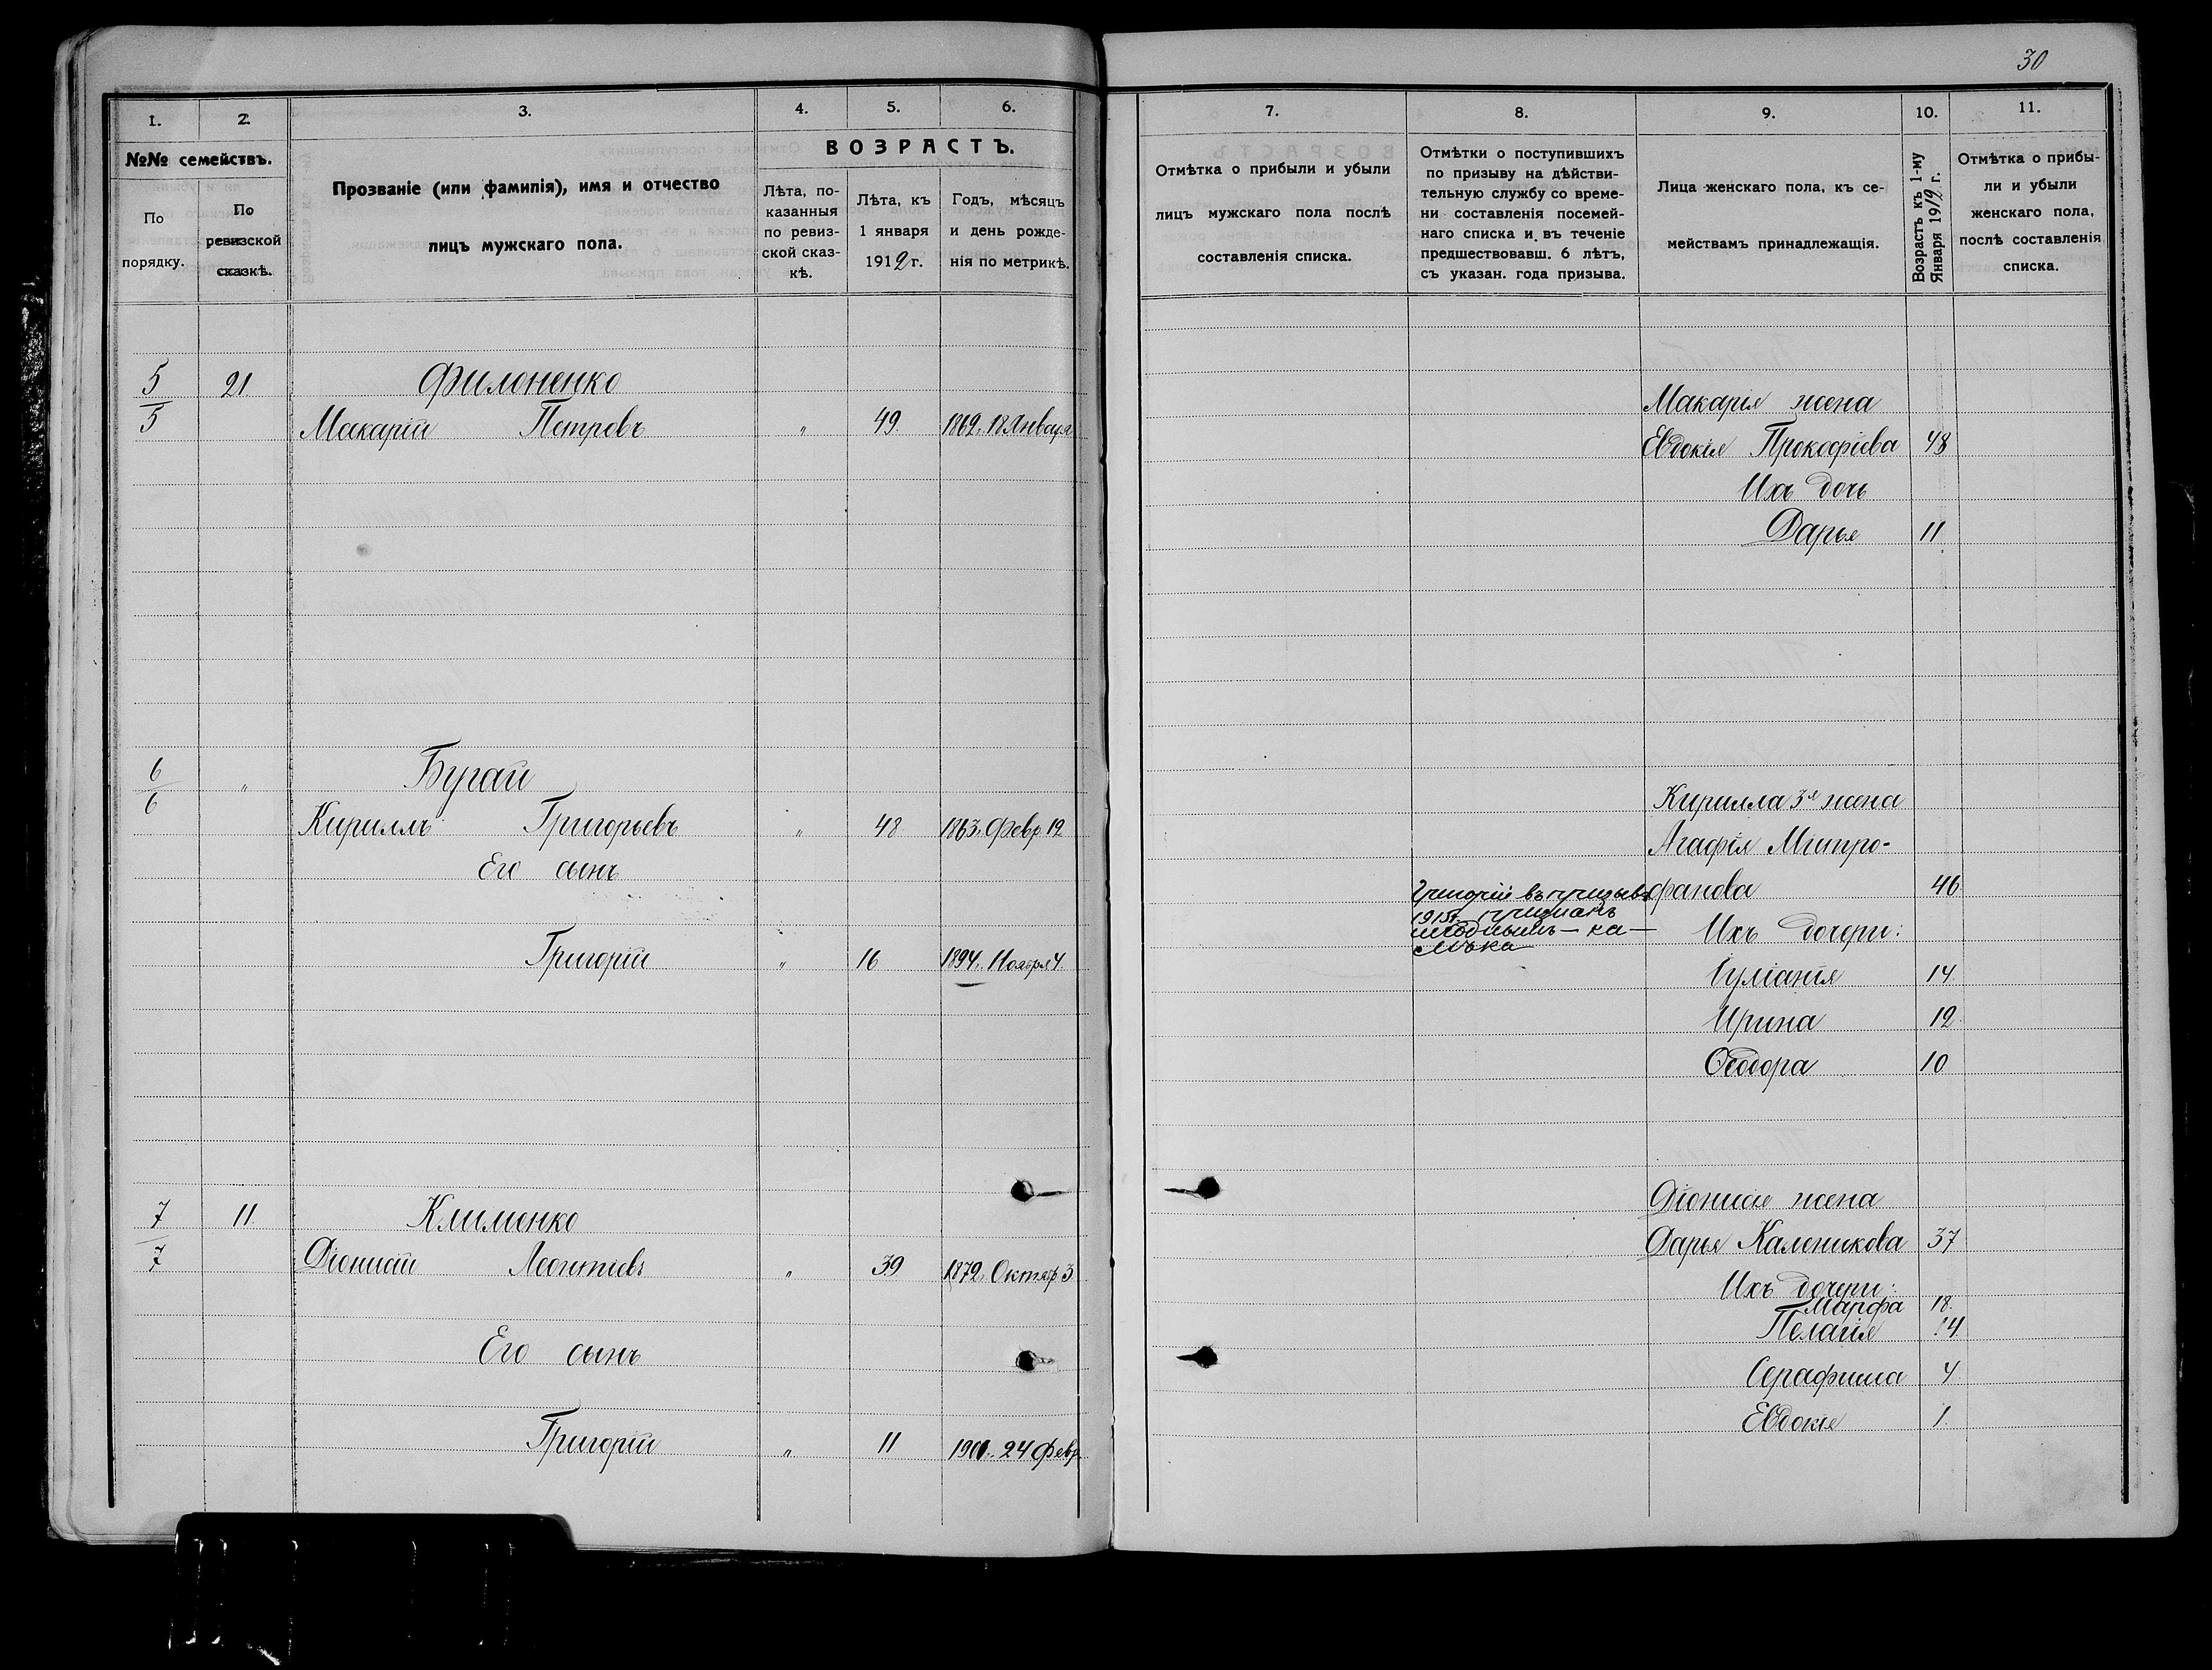 30
1. 2. 3. 4. 5. 6.
№№ семействъ.
По порядку.
По ревизской сказкѣ.
Прозваніе (или фамилія), имя и отчество
лицъ мужскаго пола.
ВОЗРАСТЪ.
Лѣта, по-
казанныя
по ревиз-
ской сказ-
кѣ.
Лѣта, къ
1 января
1912 г.
Годъ, мѣсяцъ
и день рожде-
нія по метрикѣ.
5/5 21 Филоненко
Макарій Петровъ " 49. 1862. 18 Января
6/6 " Бугай
Кириллъ Григорьевъ " 48 1863. Февр 12
Его сынъ
Григорій " 16 1894. Ноября 4.
7/7 11. Клименко
Діонисій Леонтіевъ " 39 1872. Октяр 3
Его сынъ
Григорій " 11 1901. 24 Февр.
7. 8. 9. 10. 11.
Отмѣтка о прибыли и убыли
лицъ мужскаго пола послѣ
составленія списка.
Отмѣтки о поступившихъ
по призыву на дѣйстви-
тельную службу со време-
ни составленія посемей-
наго списка и въ теченіе
предшествовавш. 6 лѣтъ,
съ указан. года призыва.
Лица женскаго пола, къ се-
мействамъ принадлежащія.
Возрастъ къ 1-му
Января 1912 г.
Отмѣтка о прибы-
ли и убыли
женскаго пола,
послѣ составленія
списка.
Макарія жена
Евдокія Прокофіева 48
Ихъ дочь
Дарья 11
Кирилла 3я жена
Агафія Митро-
фанова 46
Григорій въ призывъ
1915г. признанъ
негоднымъ — ка-
лѣка
Ихъ дочери:
Іуліанія 14.
Ирина 12
Ѳеодора 10
Діонисія жена
Дарья Калоникова 37
Ихъ дочери:
Марфа 18.
Пелагія 14.
Серафима 4
Евдокія 1.